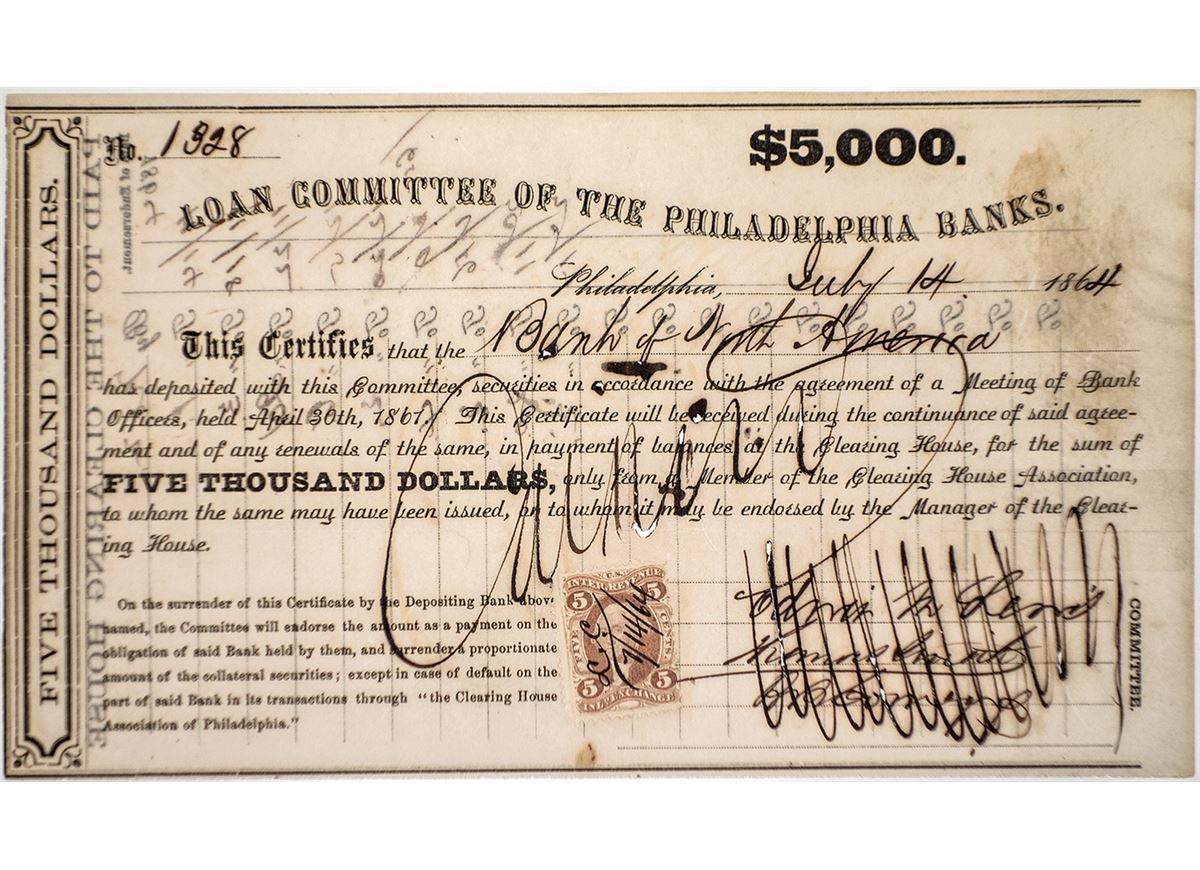 No. 1328
$5,000.
LOAN COMMITTEE OF THE PHILADELPHIA BANKS.
Philadelphia, July 14 1864
This Certifies that the Bank of North America
has deposited with this Committee, securities in accordance with the agreement of a Meeting of Bank
Officers, held April 30th, 1861. This Certificate will be received during the continuance of said agree-
ment and of any renewals of the same, in payment of balances at the Clearing House, for the sum of
FIVE THOUSAND DOLLARS, only from a Member of the Clearing House Association,
to whom the same may have been issued, or to whom it may be endorsed by the Manager of the Clear-
ing House.
On the surrender of this Certificate by the Depositing Bank above
named, the Committee will endorse the amount as a payment on the
obligation of said Bank held by them, and surrender a proportionate
amount of the collateral securities; except in case of default on the
part of said Bank in its transactions through "the Clearing House
Association of Philadelphia."
FIVE THOUSAND DOLLARS.
PAID TO THE CLEARING HOUSE
Date of Endorsement.
U.S.
INTER. REVENUE
5 5
FIVE CENTS
7/14/64
5 5
INLAND EXCHANGE
COMMITTEE.